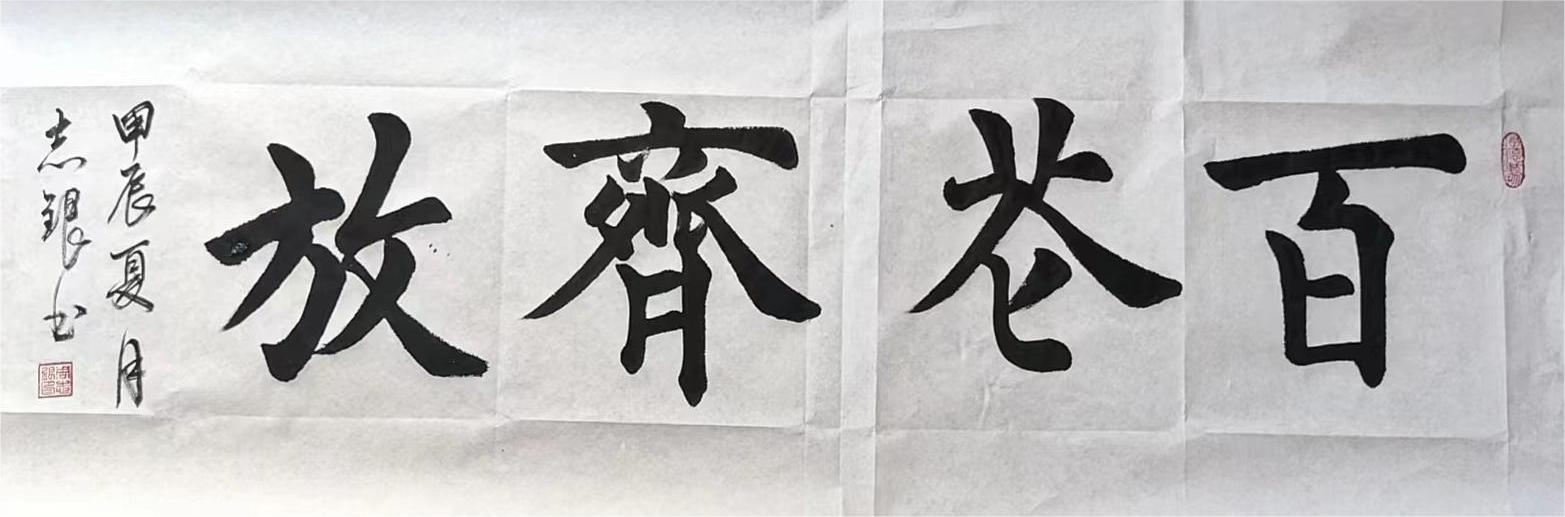 百花齊放
甲辰夏月
志銀书